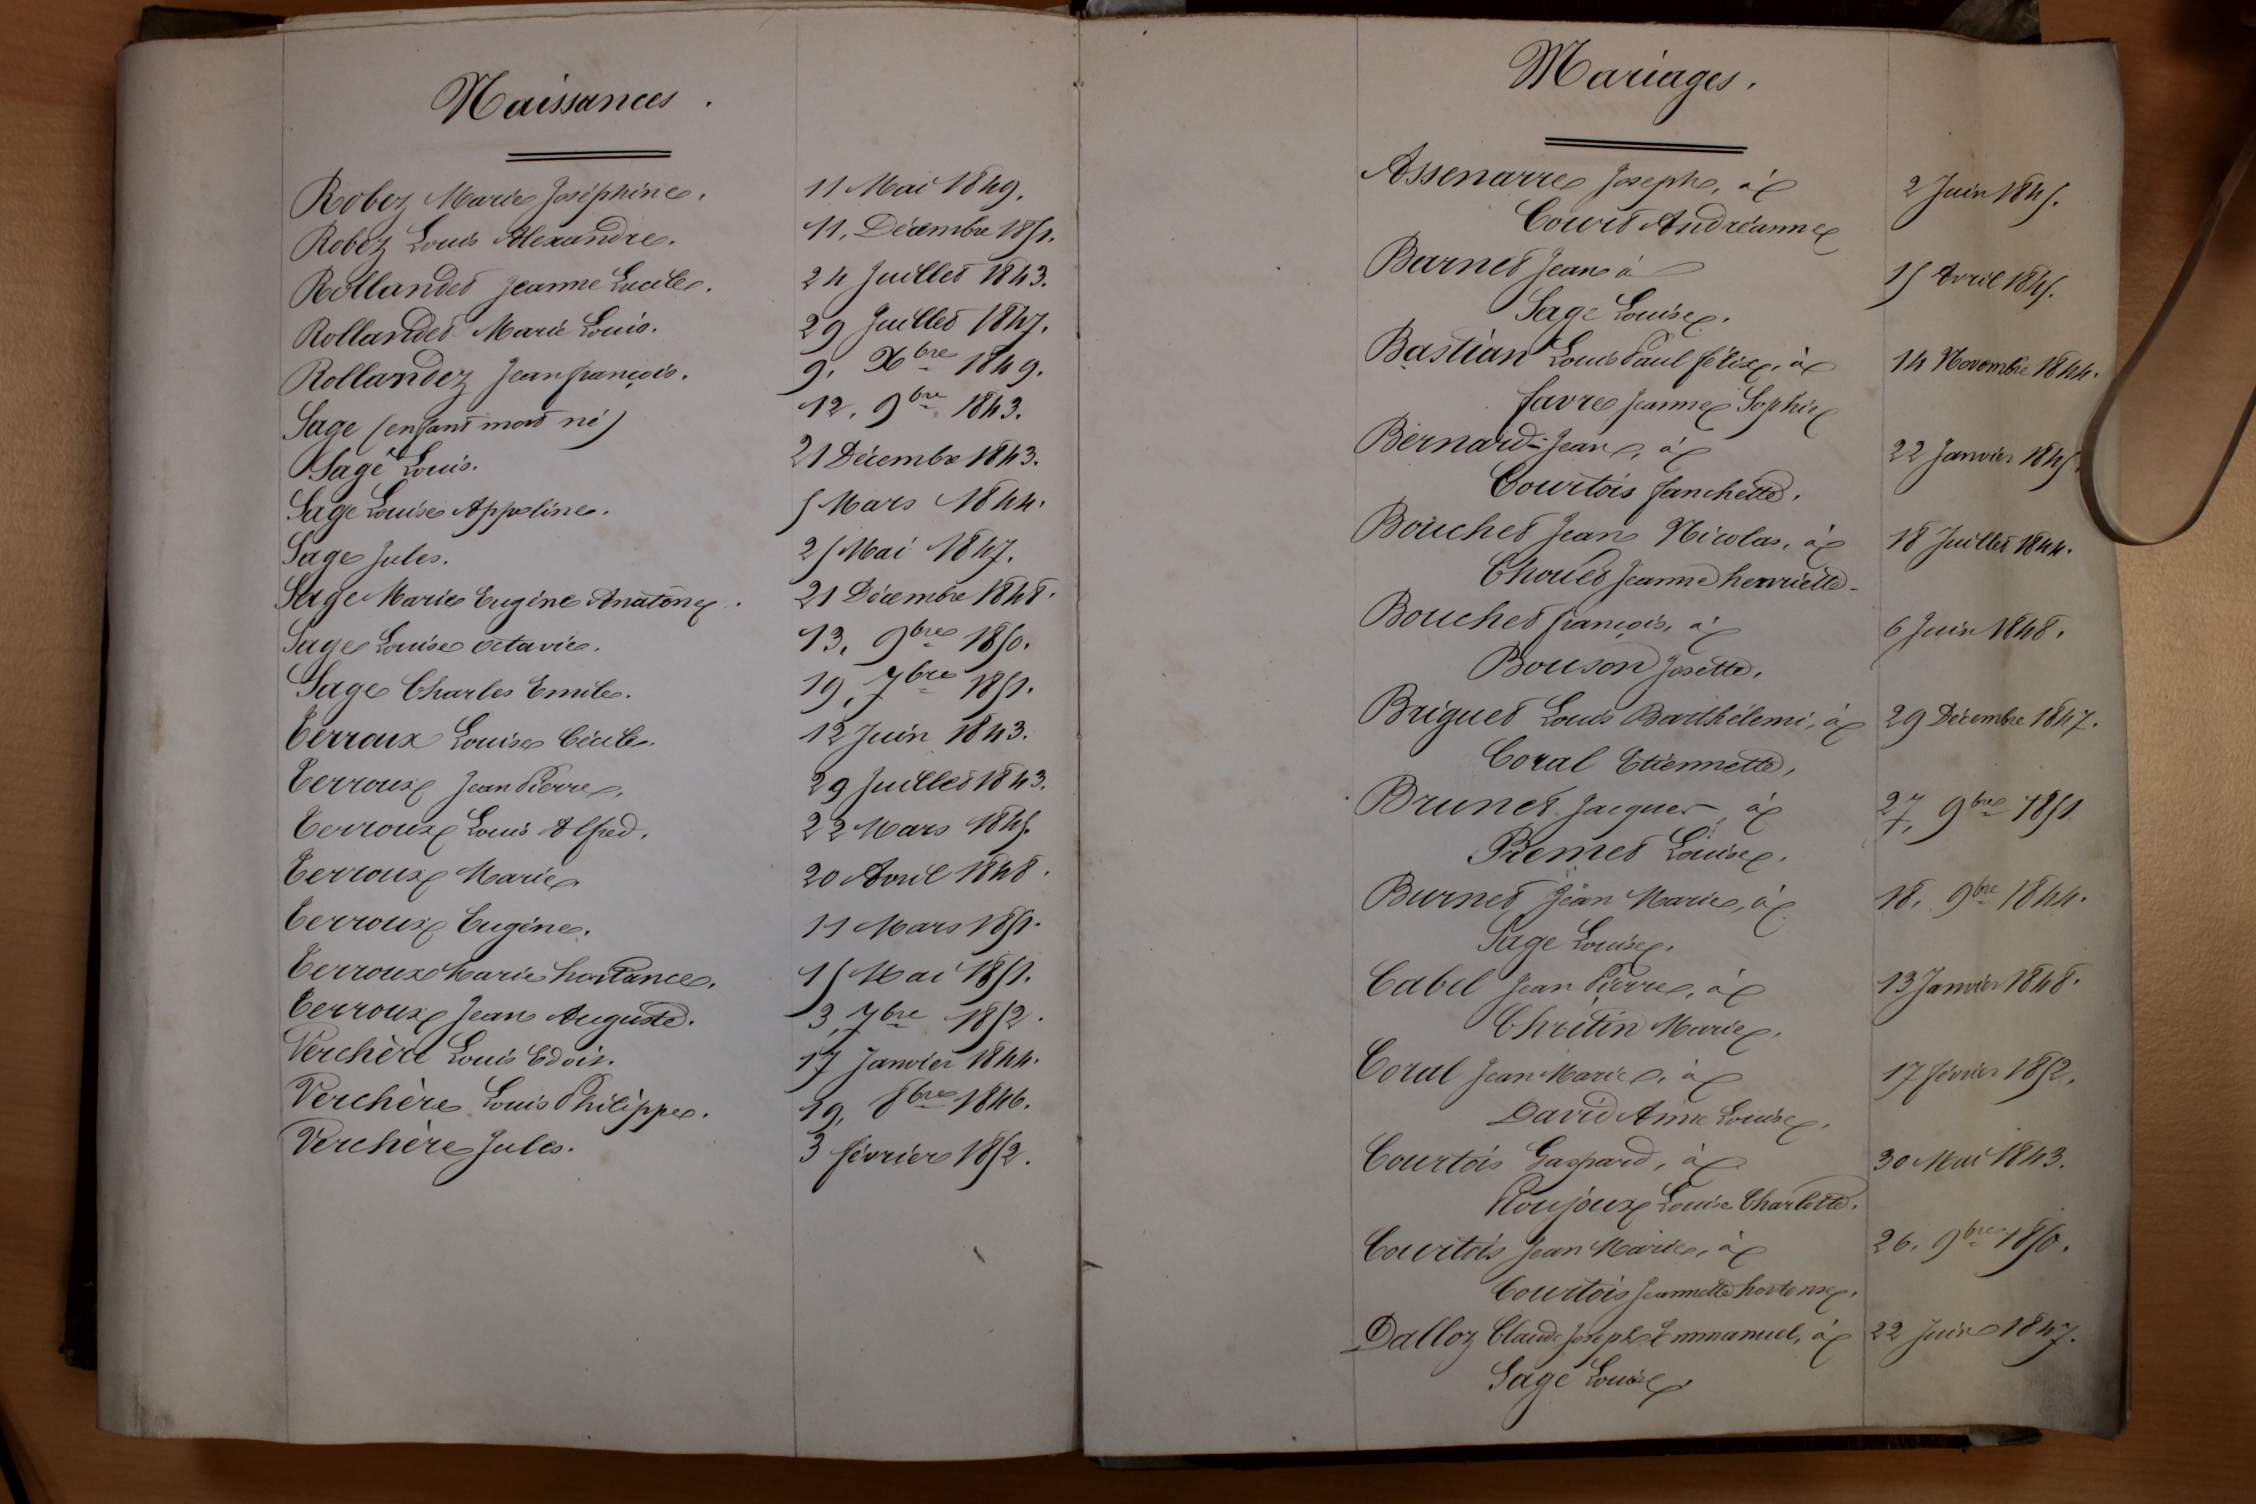 Naissances.
Robez Marie Joséphine. 11 Mai 1849.
Robez Louis Alexandre. 11. Décembre 1851.
Rollandet Jeanne Lucile. 24 Juillet 1843.
Rollandet Marie Louis. 29 Juillet 1847.
Rollandez Jean françois. 9. Xbre 1849.
Sage (enfant mort né) 12. 9bre 1843.
Sage Louis. 21 Décembre 1843.
Sage Louise Appoline. 5 Mars 1844.
Sage Jules. 25 Mai 1847.
Sage Marie Eugène Anatone. 21 Décembre 1848.
Sage Louise Octavie. 13. 9bre 1850.
Sage Charles Emile. 19. 7bre 1851.
Terroux Louise Cécile. 12 Juin 1843.
Terroux Jean Pierre. 29 Juillet 1843.
Terroux Louis Alfred. 22 Mars 1845.
Terroux Marie 20 Avril 1848.
Terroux Eugène. 11 Mars 1851.
Terroux Marie hortance. 15 Mai 1851.
Terroux Jean Auguste. 3. 7bre 1852.
Verchère Louis 17 Janvier 1844.
Verchère Louis Philippe. 19. 8bre 1846.
Verchère Jules. 3 février 1852.
Mariages.
Assenarre Joseph, à 2 Juin 1845.
Court Andréanne
Barnet Jean à 15 Avril 1845.
Sage Louise.
Bastian Louis Paul félix, à 14 Novembre 1844.
favre Jeanne Sophie
Bernard Jean, à 22 Janvier 1845.
Courtois fanchette.
Bouchet Jean Nicolas, à 18 Juillet 1844.
Chouet Jeanne henriette.
Bouchet françois, à 6 Juin 1848.
Bouson Josette.
Briguet Louis Barthélemi, à 29 Décembre 1847.
Coral Etiennette,
Brunet Jacques, à 27. 9bre 1851
Premet Louise.
Burnet Jean Marie, à 18. 9bre 1844.
Sage Louise.
Cabel Jean Pierre, à 13 Janvier 1848.
Chretin Marie.
Coral Jean Marie, à 17 février 1852.
David Anne Louise.
Courtois Gaspard, à 30 Mai 1843.
Roujoux Louise Charlotte.
Courtois Jean Marie, à 26. 9bre 1850.
Courtois Jeannette hortense.
Dalloz Claude Joseph Emmanuel, à 22 Juin 1847.
Sage Louise